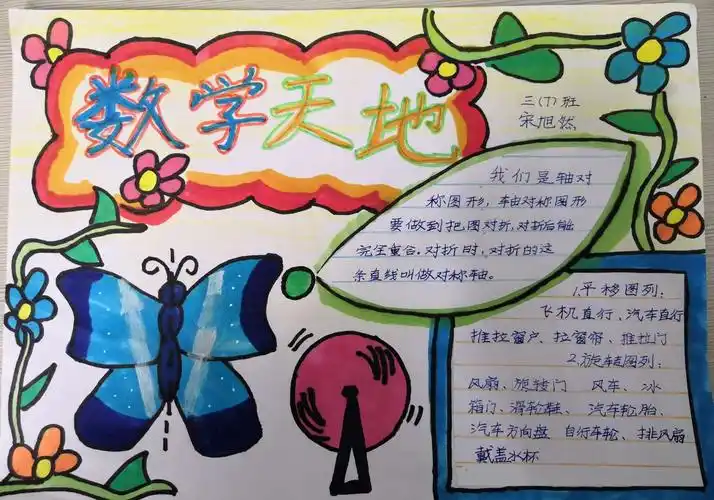 数学天地
三(7)班
宋旭然
我们是轴对
称图形，轴对称图形
要做到把图对折，对折后能
完全重合。对折时，对折的这
条直线叫做对称轴。
1.平移图列：
飞机直行、汽车直行
推拉窗户、拉窗帘、推拉门
2.旋转图列：
风扇、旋转门 风车、冰
箱门、滑轮鞋、汽车轮胎、
汽车方向盘 自行车轮、排风扇
戴盖水杯